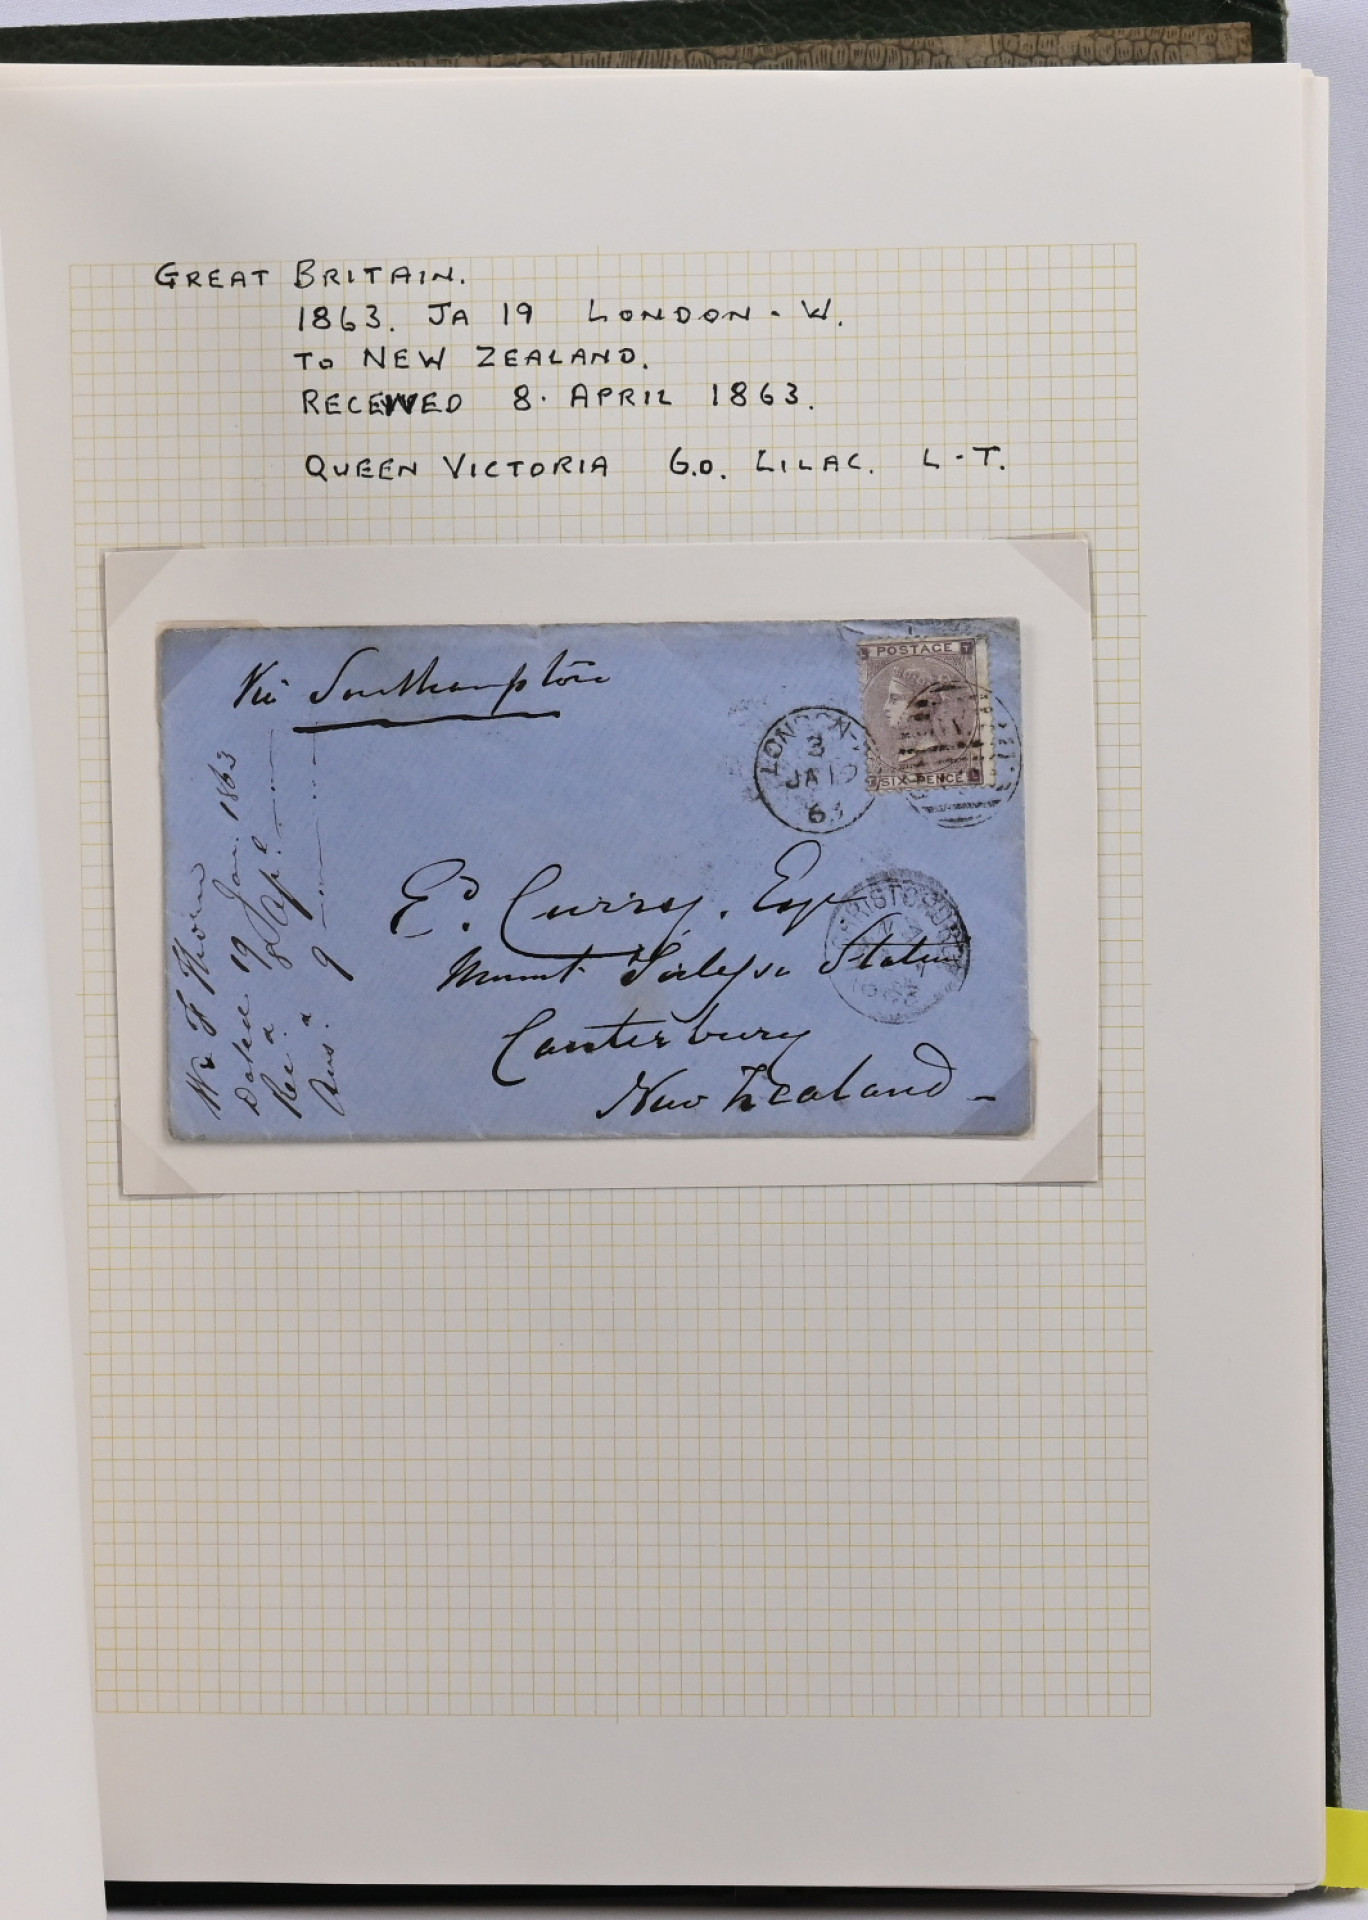 GREAT BRITAIN.
1863. JA 19 LONDON - W.
TO NEW ZEALAND.
RECEIVED 8. APRIL 1863.
QUEEN VICTORIA 6.D. LILAC. L - T.
Via Southampton
POSTAGE
L T
SIX PENCE
T L
LONDON-
3
JA 19
63
Ed. Curry, Esqr
Mount Station
Canterbury
New Zealand -
CHRISTCHURCH
1863
Dated 19 Jan. 1863
Rec.d 8 Apl.
Ans.d 9